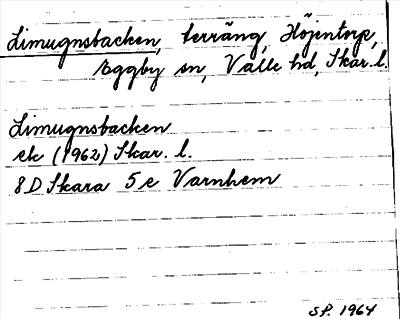 Limugnsbacken, terräng, Höjentorp,
Eggby sn, Valle hd, Skar. l.
Limugnsbacken
ek (1962) Skar. l.
8D Skara 5e Varnhem
SP. 1964